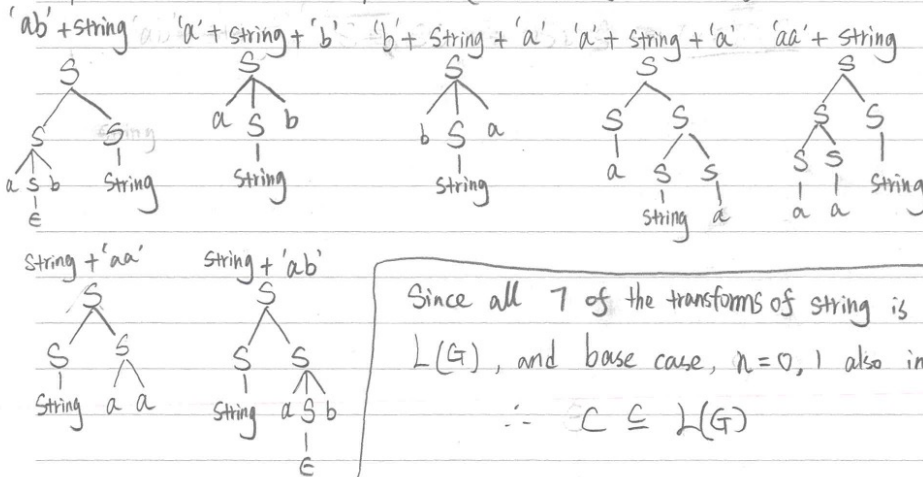 'ab' + string 'a' + string + 'b' 'b' + string + 'a' 'a' + string + 'a' 'aa' + string
S S S S S
S S a S b b S a S S S S
a S b string string string a S S S S string
ε string a a a
string + 'aa' string + 'ab'
S S
S S S S
string a a string a S b
ε
Since all 7 of the transforms of string is
L(G), and base case, n=0, 1 also in
∴ C ⊆ L(G)